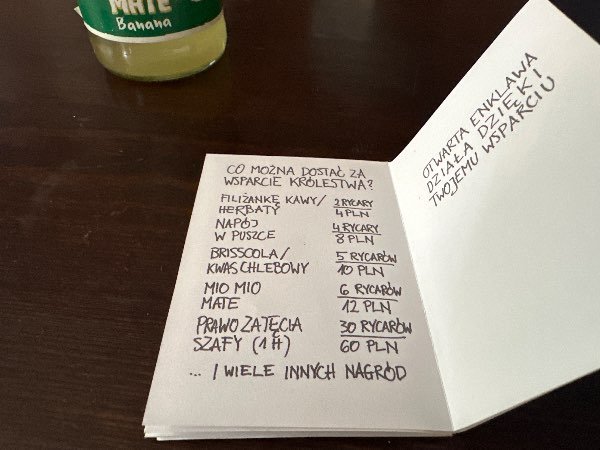 MATE
Banana
CO MOŻNA DOSTAĆ ZA
WSPARCIE KRÓLESTWA?
FILIŻANKĘ KAWY/
HERBATY
2 RYCARY
4 PLN
NAPÓJ
W PUSZCE
4 RYCARY
8 PLN
BRISSCOLA/
KWAS CHLEBOWY
5 RYCARÓW
10 PLN
MIO MIO
MATE
6 RYCARÓW
12 PLN
PRAWO ZAJĘCIA
SZAFY (1H)
30 RYCARÓW
60 PLN
... I WIELE INNYCH NAGRÓD
OTWARTA ENKLAWA
DZIAŁA DZIĘKI
TWOJEMU WSPARCIU